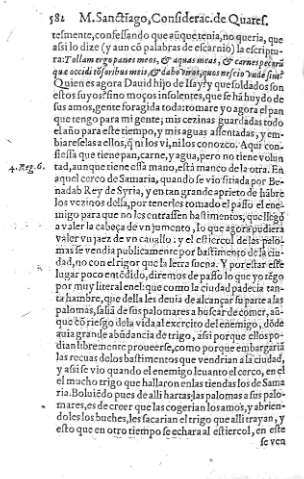 582 M. Sanctiago, Considerac. de Quares.
tesmente, confessando que aũque tenia, no queria, que
assi lo dize (y aun cō palabras de escarnio) la escriptu-
ra: Tollam ergo panes meos, & aquas meas, & carnes pecorũ
que occidi tōsoribus meis, & dabo viris, quos nescio vnde sint?
Quien es agora Dauid hijo de Isay? que soldados son
estos suyos? sino moços insolentes, que se hã huydo de
sus amos, gente foragida toda: tomare yo agora el pan
que tengo para mi gente; mis cezinas guardadas todo
el año para este tiempo, y mis aguas assentadas, y em-
biareselas a ellos, q̃ ni los vi, ni los conozco. Aqui con-
fiessa que tiene pan, carne, y agua, pero no tiene volun
4. Reg. 6. tad, aunque tiene esta mano, està manco de la otra. En
aquel cerco de Samaria, quando se vio sitiada por Be-
nadab Rey de Syria, y en tan grande aprieto de hãbre
los vezinos della, por tenerles tomado el passo el ene-
migo para que no les entrassen bastimentos, que llegò
a valer la cabeça de vn jumento, lo que agora pudiera
valer vn jaez de vn cauallo: y el estiercol de las palo-
mas se vendia publicamente por bastimento de la ciu-
dad, no con el rigor que la letra suena. Y por estar este
lugar poco entẽdido, diremos de passo lo que yo tẽgo
por muy literal en el: que como la ciudad padecia tan-
ta hambre, que della les deuia de alcançar su parte a las
palomas, salia de sus palomares a buscar de comer, aũ-
que cō riesgo de la vida al exercito del enemigo, dōde
auia grande abũdancia de trigo, assi porque ellos po-
dian libremente proueerse, como porque embargariã
las recuas de los bastimentos que vendrian a la ciudad,
y assi se vio quando el enemigo leuanto el cerco, en el
el mucho trigo que hallaron en las tiendas los de Sama
ria. Boluiẽdo pues de alli hartas las palomas a sus palo-
mares, es de creer que las cogerian los amos, y abrien-
doles los buches, les sacarian el trigo que alli trayan, y
esto que en otro tiempo se echara al estiercol, en este
se ven